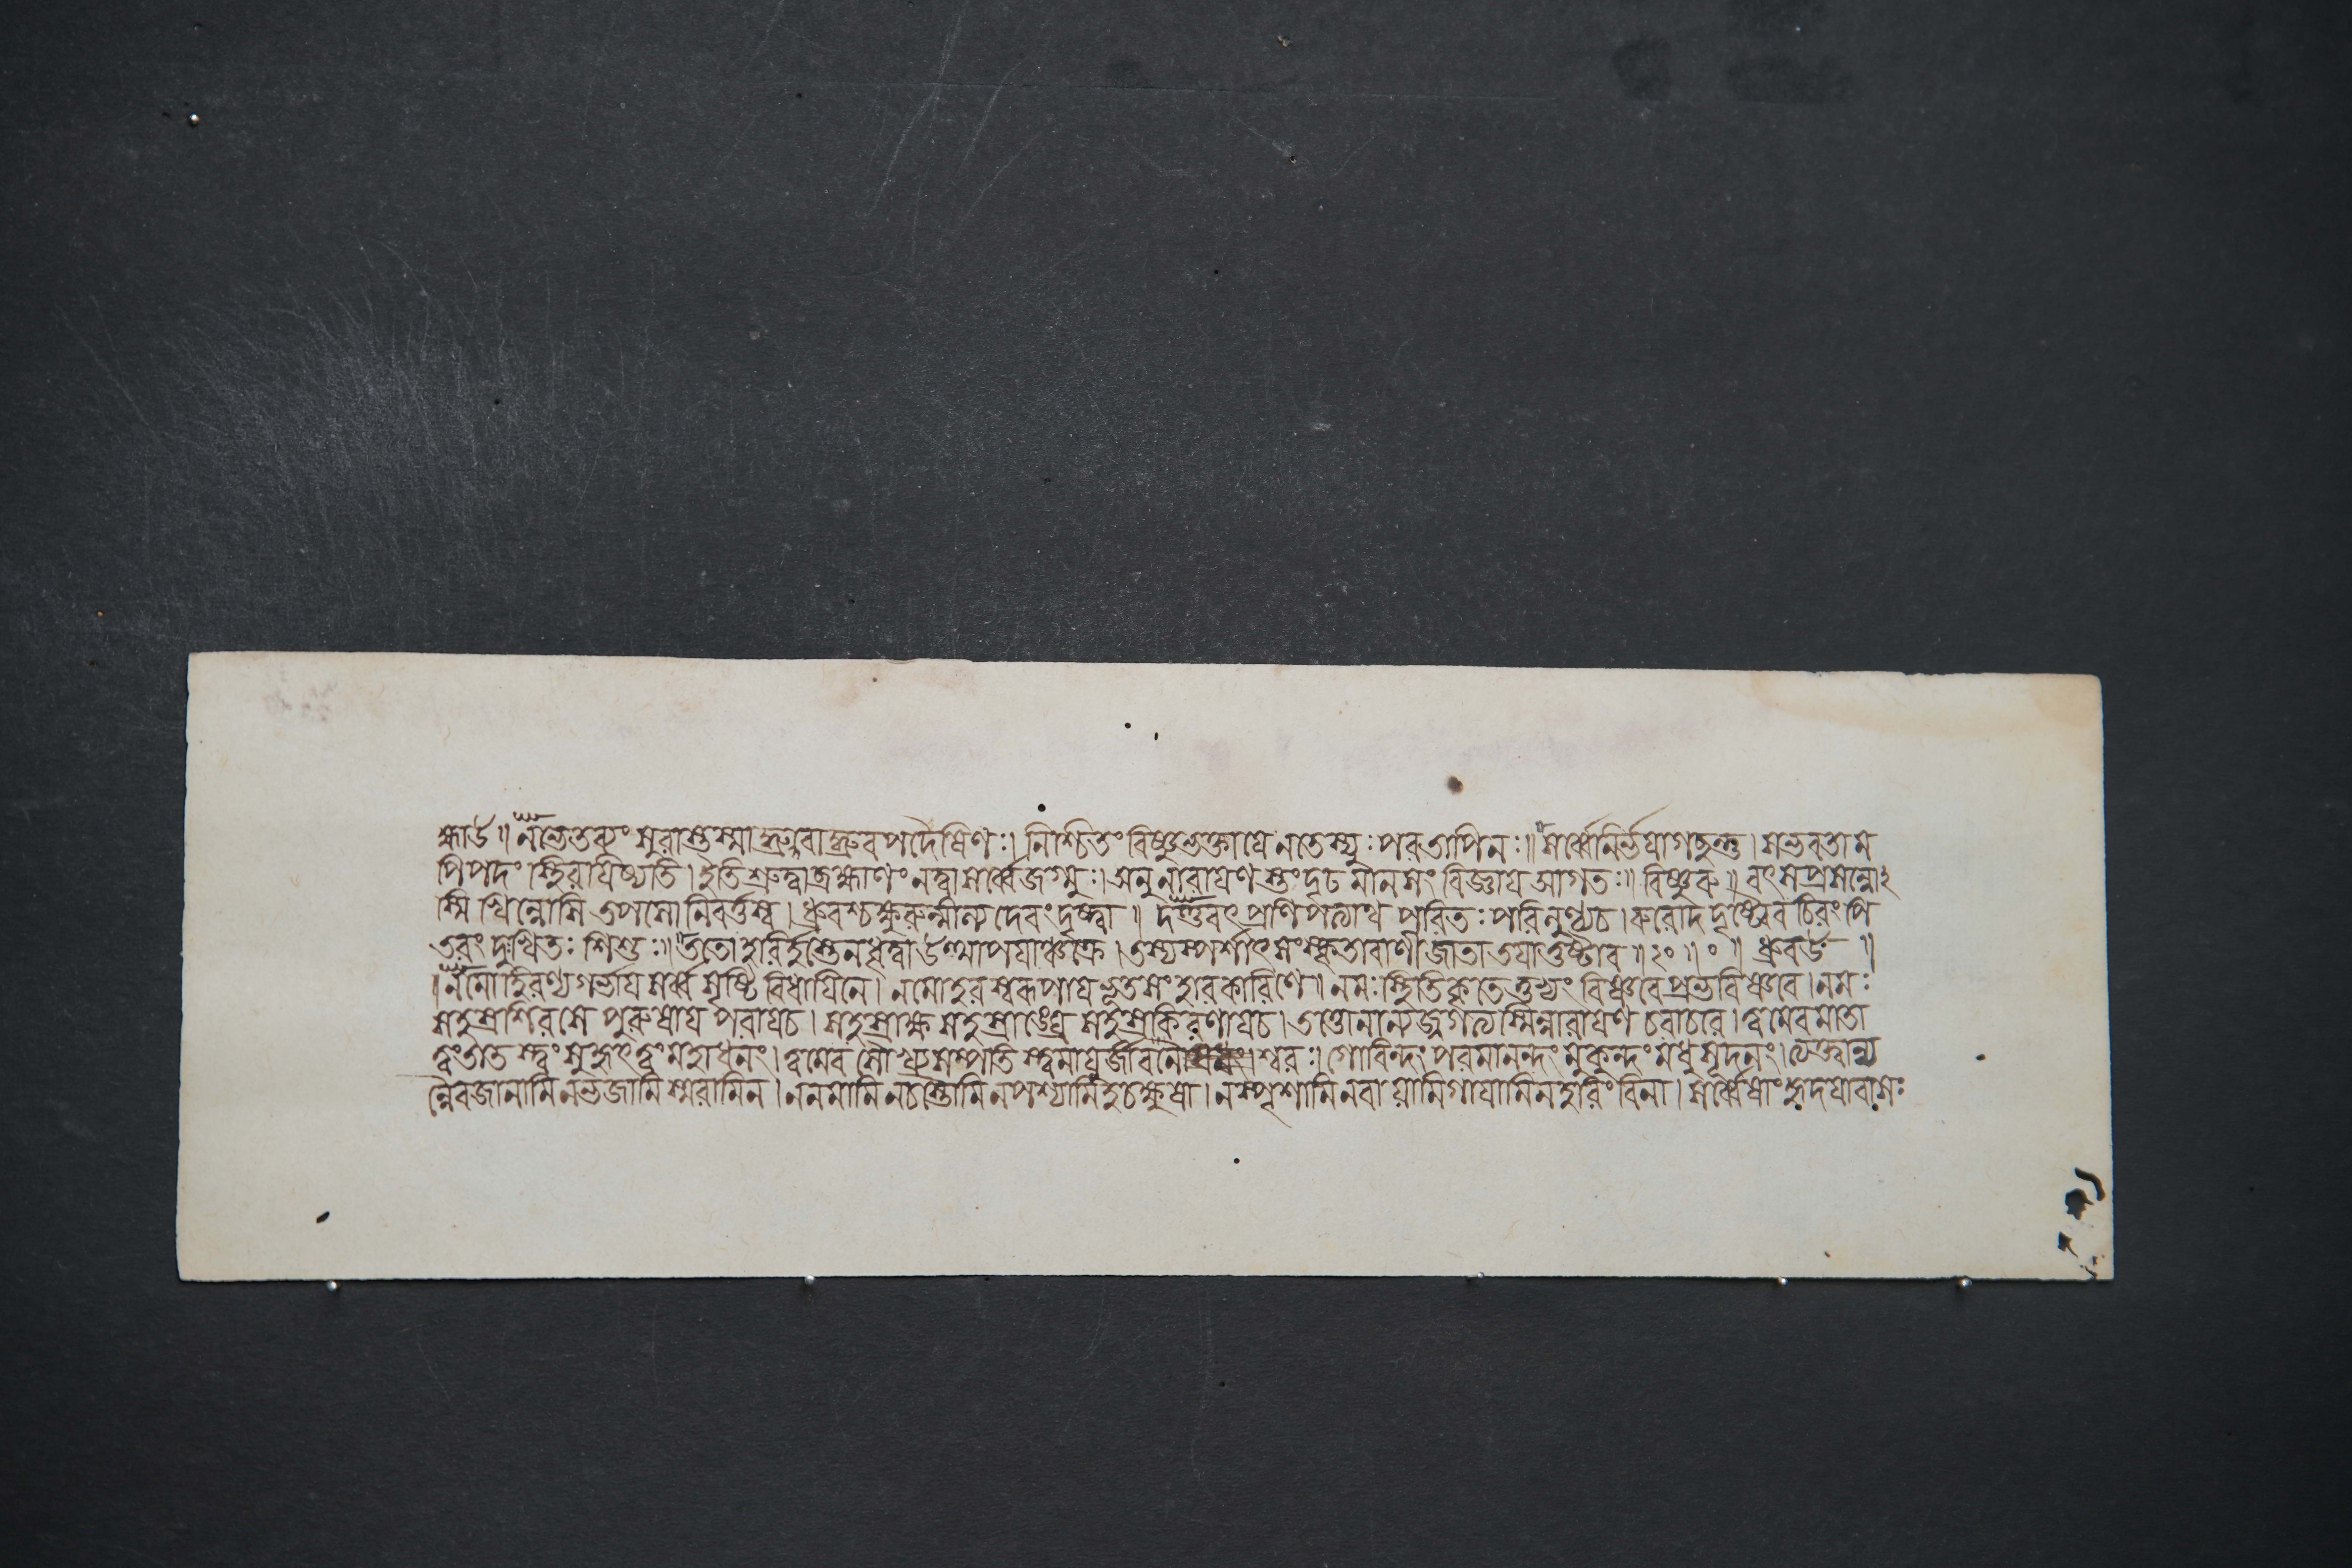 হ্মাউ॥ নভেতব্যং সুরাস্তস্মাদ্ধ্রুবাদ্ধ্রুবপদৈষিণঃ। নিশ্চিতং বিষ্ণুভক্তাযে নতেস্যুঃ পরতাপিনঃ॥ সর্ব্বেনির্ভযাগছন্তু। সভবতাম
পিপদং স্থিরযিষ্যতি। ইতিশ্রুত্বাব্রহ্মাণং নত্বাসর্ব্বেজগ্মুঃ। অনুনারাযণস্তংদৃঢমানসং বিজ্ঞায আগতঃ॥ বিষ্ণুরু॥ বৎসপ্রসন্নো২
স্মি খিন্নোসি তপসোনিবর্ত্তস্ব। ধ্রুবশ্চক্ষুরুন্মীল্য দেবংদৃষ্ট্বা॥ দণ্ডবৎপ্রণিপত্যাথ পরিতঃ পরিলুণ্ঠ্যচ। রুরোদ দৃষ্ট্বৈব চিরং পি
তরং দুঃখিতঃ শিশুঃ॥ ততোহরির্হস্তেনধৃত্বাউত্থাপযাঞ্চক্রে। তস্যস্পর্শাৎ সংস্কৃতাবাণীজাতা তযাতুষ্টাব॥২০॥০॥ ধ্রুবউ॥
॥নমোহিরণ্যগর্ভায সর্ব্বসৃষ্টিবিধাযিনে। নমোহরস্বরূপায ভূতসংহারকারিণে॥ নমঃস্থিতিকৃতেতুভ্যং বিষ্ণবেপ্রভবিষ্ণবে। নমঃ
সহস্রশিরসে পুরুষায পরাযচ। সহস্রাক্ষ সহস্রাঙ্ঘ্রে সহস্রকিরণাযচ। ত্বত্তোনান্যজ্জগত্যস্মিন্নারাযণ চরাচরে। ত্বমেবমাতা
ত্বংতাতস্ত্বং সুহৃৎত্বং মহাধনং। ত্বমেব সৌখ্যসম্পত্তিস্ত্বমাযুর্জীবনেশ্বরঃ। গোবিন্দং পরমানন্দং মুকুন্দং মধুসূদনং। ত্যক্ত্বান্য
ন্নৈবজানামি নভজামি স্মরামিন। ননমামি নচস্তৌমি নপশ্যামিহচক্ষুষা। নস্পৃশামি নবাযামি গাযামিনহরিংবিনা। সর্ব্বেষাং হৃদযাবাসঃ